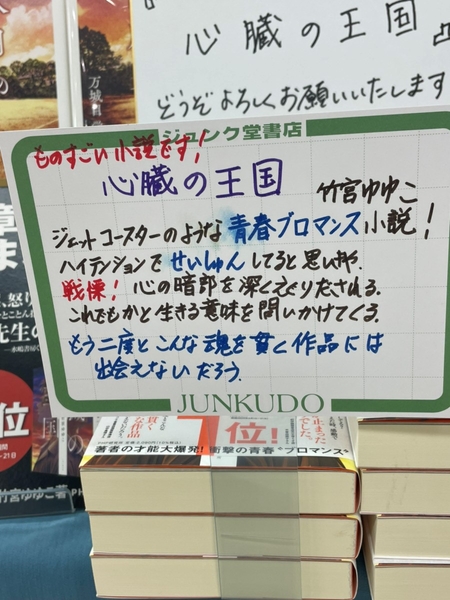 心臓の王国』
どうぞよろしくお願いいたします
万城目
ジュンク堂書店
ものすごい小説です!
心臓の王国 竹宮ゆゆこ
ジェットコースターのような青春ブロマンス小説!
ハイテンションでせいしゅんしてると思いきや、
戦慄! 心の暗部を深くえぐりだされる。
これでもかと生きる意味を問いかけてくる。
もう二度とこんな魂を貫く作品には
出会えないだろう。
JUNKUDO
位
竹宮ゆゆこ著
位!
著者の才能大爆発! 衝撃の青春"ブロマンス"